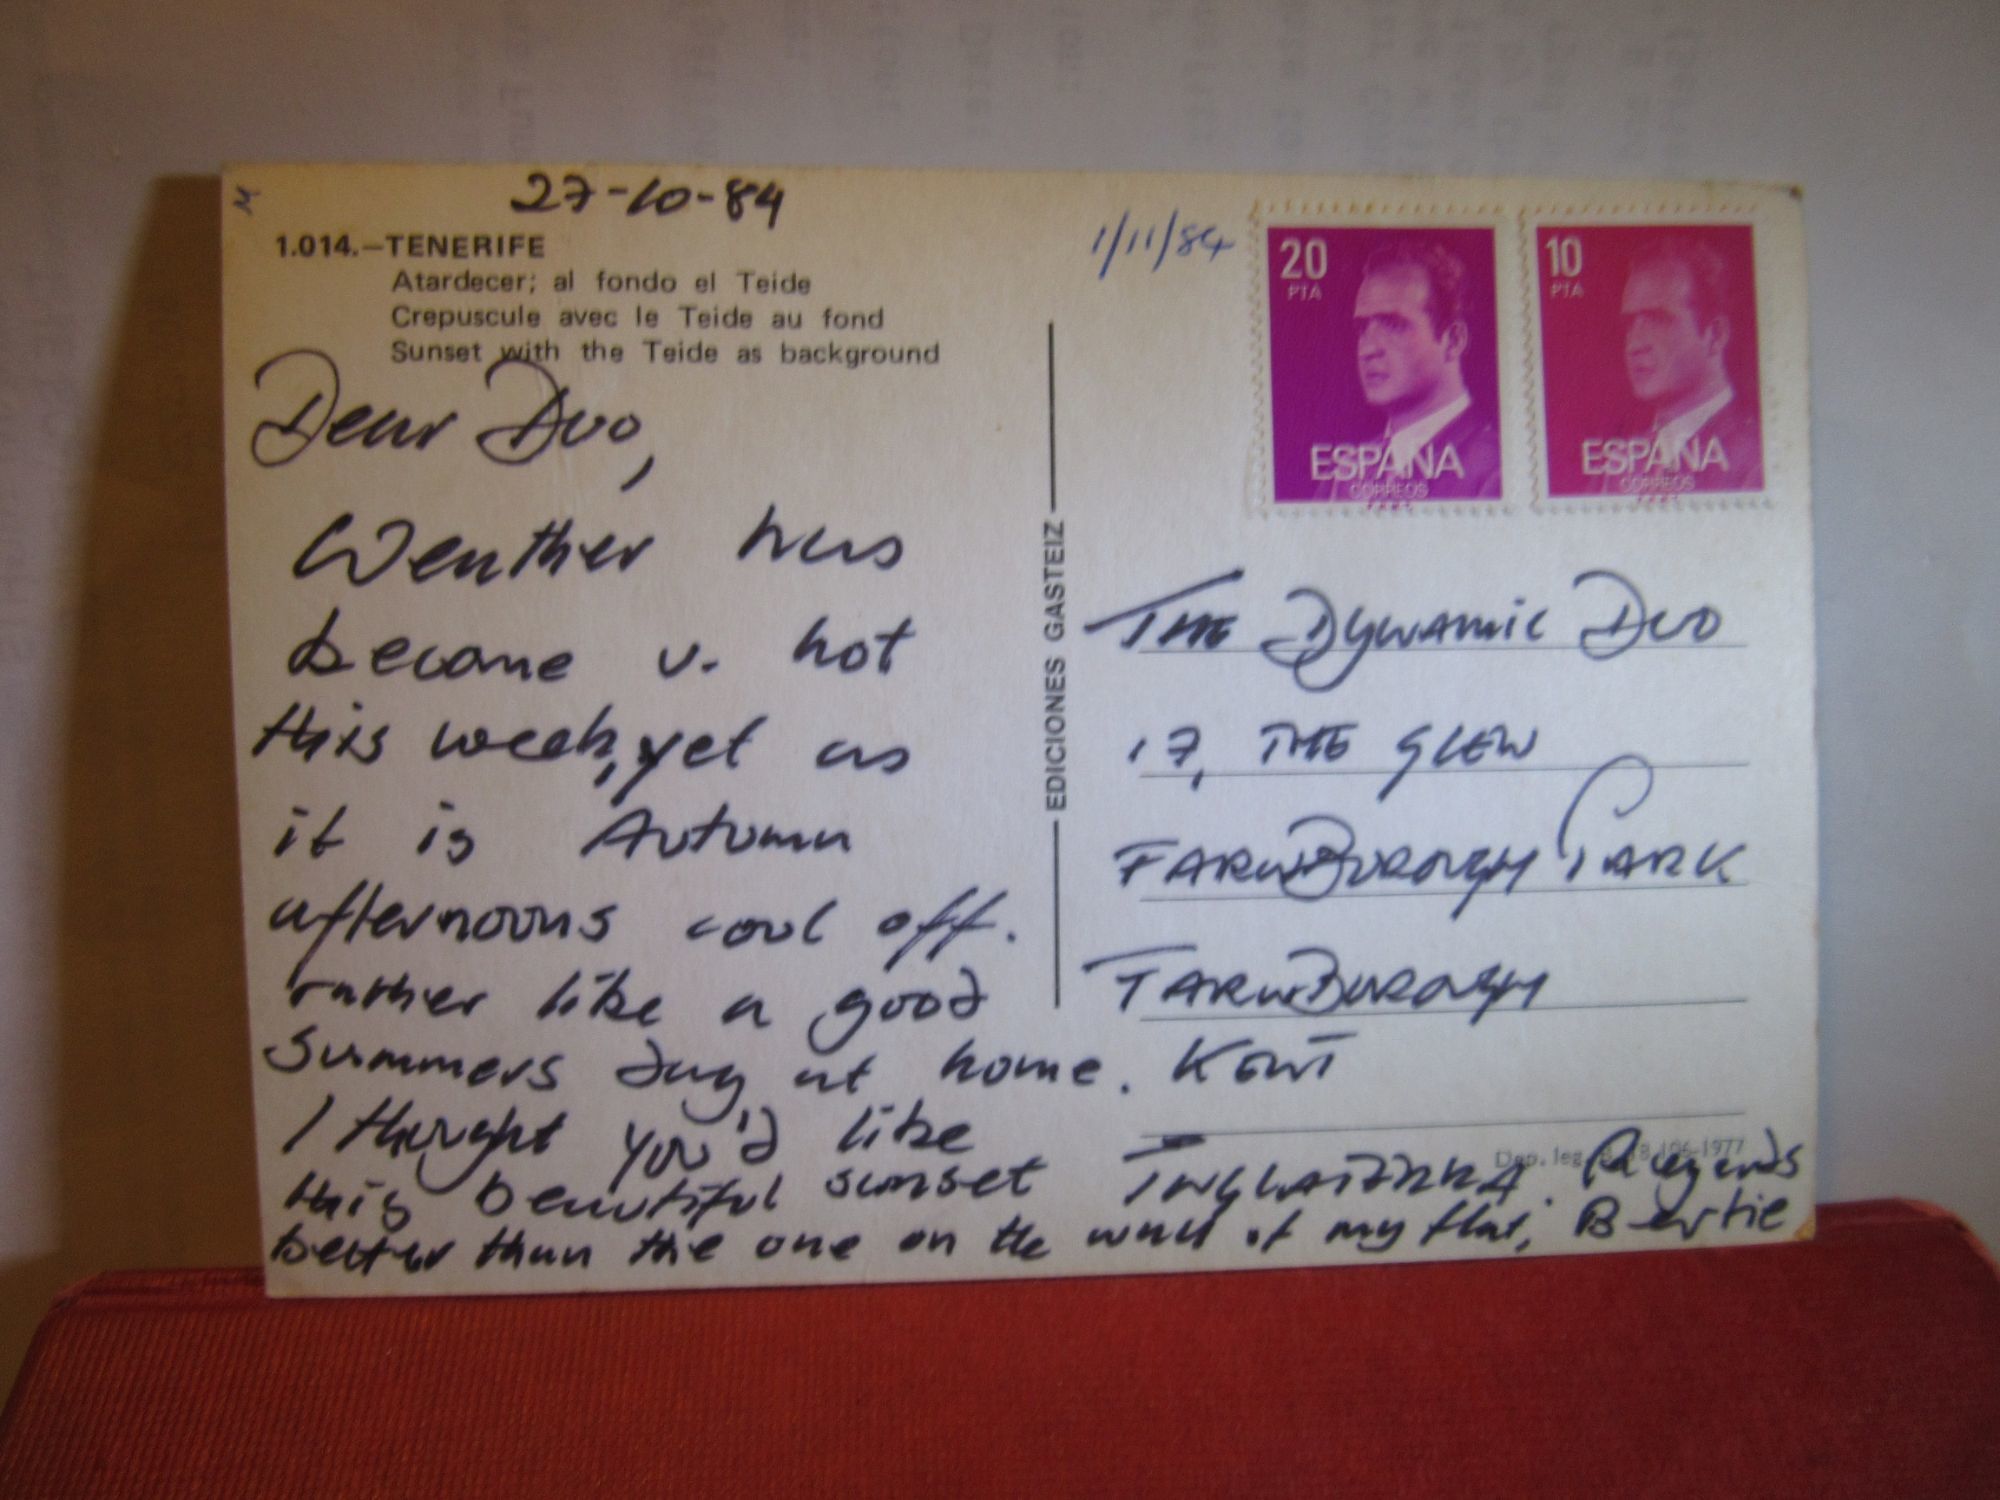 27-10-84
1.014.—TENERIFE
Atardecer; al fondo el Teide
Crepuscule avec le Teide au fond
Sunset with the Teide as background
Dear Duo,
Weather has
become v. hot
this week, yet as
it is Autumn
afternoons cool off.
rather like a good
summers day at home.
I thought you'd like
this beautiful sunset
better than the one on the wall of my flat,
Regards
Bertie
EDICIONES GASTEIZ
1/11/84
20
PTA
ESPAÑA
CORREOS
10
PTA
ESPAÑA
CORREOS
THE DYNAMIC DUO
17, THE GLEN
FARNBOROUGH PARK
FARNBOROUGH
KENT
INGLATERRA